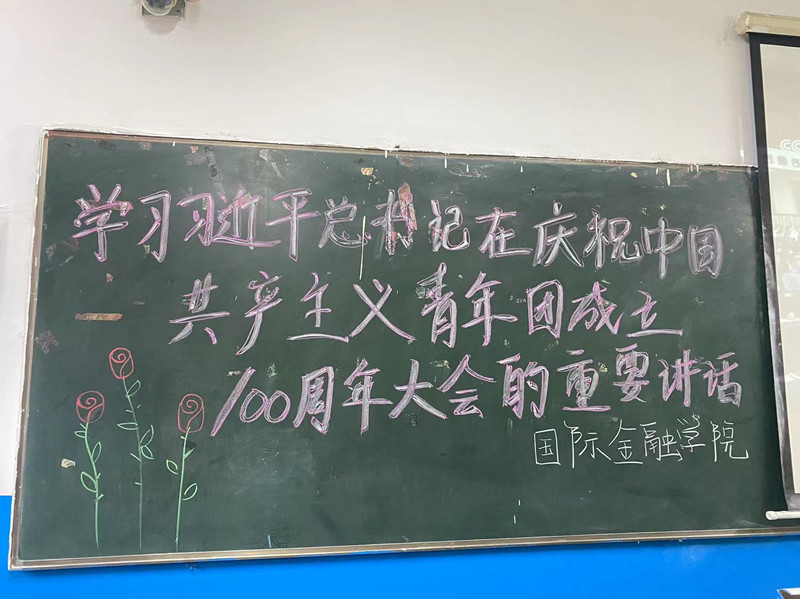 学习习近平总书记在庆祝中国
共产主义青年团成立
100周年大会的重要讲话
国际金融学院
CC